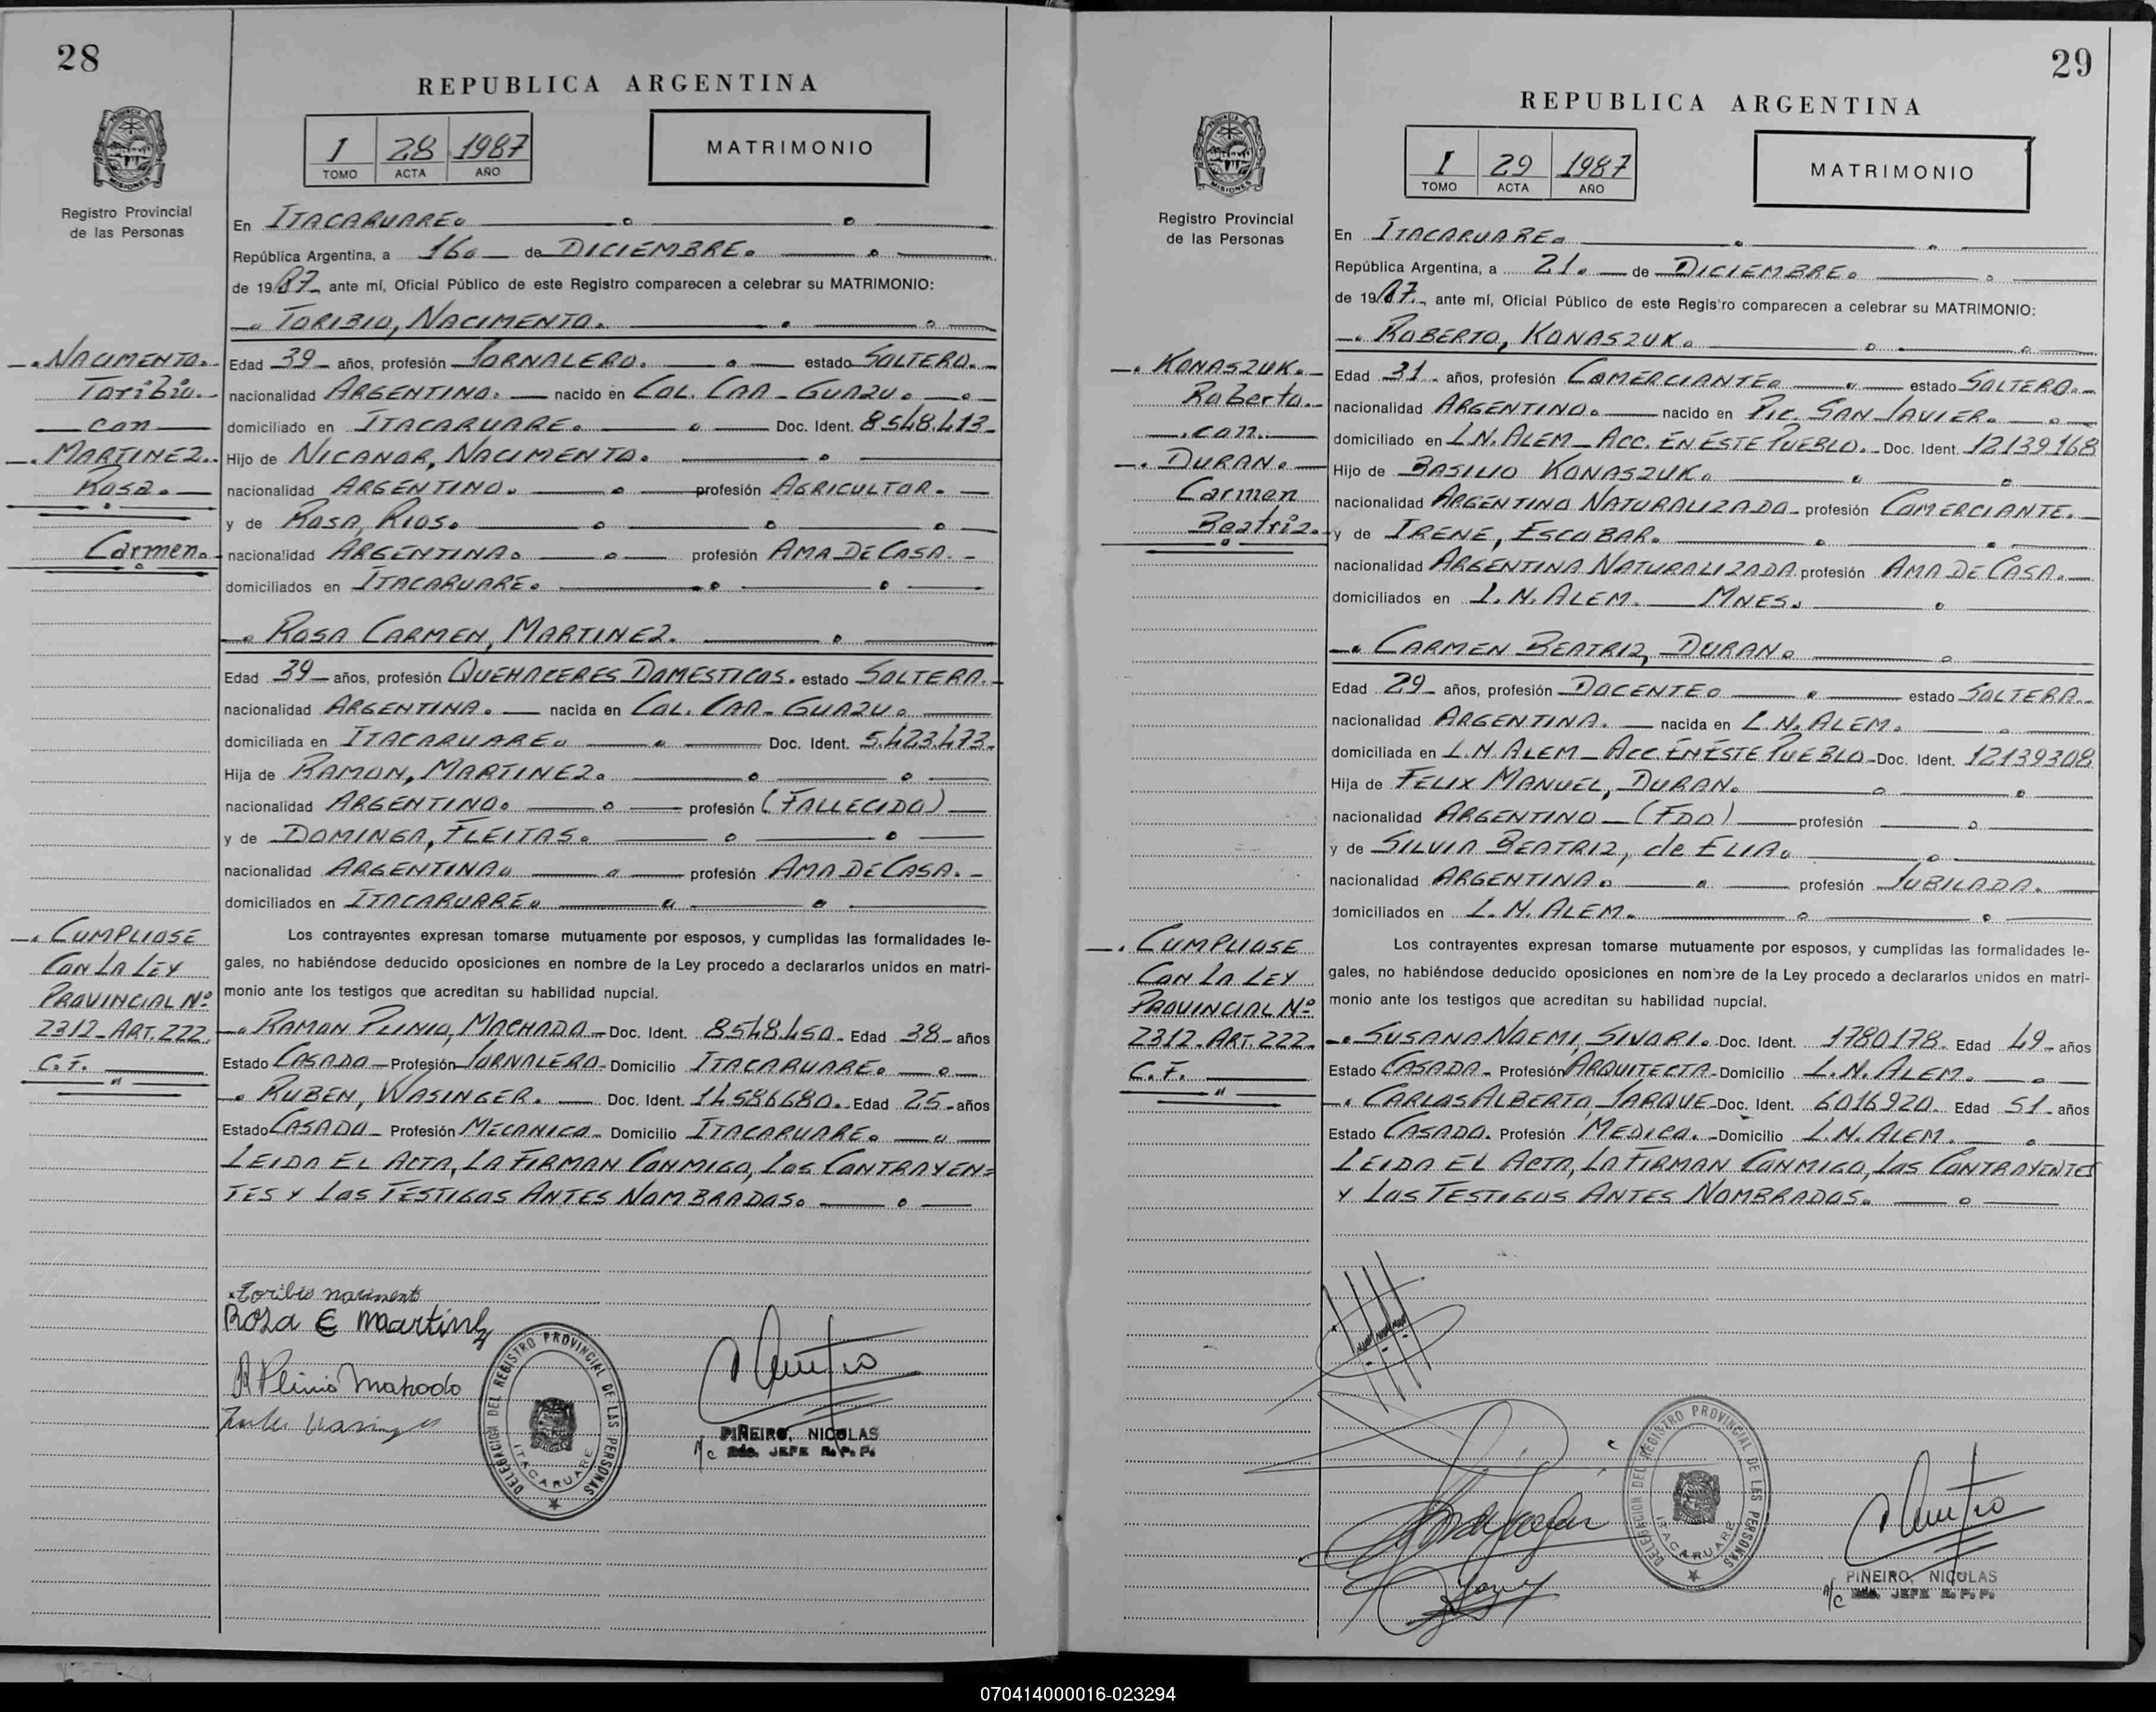 28
REPUBLICA ARGENTINA
PROVINCIA DE MISIONES
Registro Provincial
de las Personas
1 28 1987
TOMO ACTA AÑO
MATRIMONIO
En ITACARUARE.
República Argentina, a 16. de DICIEMBRE.
de 1987 ante mí, Oficial Público de este Registro comparecen a celebrar su MATRIMONIO:
TORIBIO, NACIMENTO.
NACIMENTO.
Toribio.
con
MARTINEZ.
Rosa.
Carmen.
Edad 39 años, profesión JORNALERO. estado SOLTERO.
nacionalidad ARGENTINO. nacido en COL. CAA-GUAZU.
domiciliado en ITACARUARE. Doc. Ident. 8548.413
Hijo de NICANOR, NACIMENTO.
nacionalidad ARGENTINO. profesión AGRICULTOR.
y de ROSA, RIOS.
nacionalidad ARGENTINA. profesión AMA DE CASA.
domiciliados en ITACARUARE.
ROSA CARMEN, MARTINEZ.
Edad 39 años, profesión QUEHACERES DOMESTICOS. estado SOLTERA.
nacionalidad ARGENTINA. nacida en COL. CAA-GUAZU.
domiciliada en ITACARUARE. Doc. Ident. 5.423.473.
Hija de RAMON, MARTINEZ.
nacionalidad ARGENTINO. profesión (FALLECIDO)
y de DOMINGA, FLEITAS.
nacionalidad ARGENTINA. profesión AMA DE CASA.
domiciliados en ITACARUARE.
CUMPLIOSE
CON LA LEY
PROVINCIAL Nº
2312-ART. 222.
C.F.
Los contrayentes expresan tomarse mutuamente por esposos, y cumplidas las formalidades le-
gales, no habiéndose deducido oposiciones en nombre de la Ley procedo a declararlos unidos en matri-
monio ante los testigos que acreditan su habilidad nupcial.
RAMON PLINIO, MACHADO Doc. Ident. 8548.450. Edad 38 años
Estado CASADO Profesión JORNALERO Domicilio ITACARUARE.
RUBEN, WASINGER. Doc. Ident. 14586680. Edad 25 años
Estado CASADO Profesión MECANICO Domicilio ITACARUARE.
LEIDA EL ACTA, LA FIRMAN CONMIGO, LOS CONTRAYEN=
TES Y LOS TESTIGOS ANTES NOMBRADOS.
x toribio nacimento
Rosa C martinez
R Plinio Mahodo
DELEGACION DEL REGISTRO PROVINCIAL DE LAS PERSONAS
ITACARUARE
PIÑEIRO, NICOLAS
A/c 2do. JEFE R.P.P.
29
REPUBLICA ARGENTINA
PROVINCIA DE MISIONES
Registro Provincial
de las Personas
1 29 1987
TOMO ACTA AÑO
MATRIMONIO
En ITACARUARE.
República Argentina, a 21. de DICIEMBRE.
de 1987 ante mí, Oficial Público de este Registro comparecen a celebrar su MATRIMONIO:
ROBERTO, KONASZUK.
KONASZUK.
Roberto.
con.
DURAN.
Carmen
Beatriz.
Edad 31 años, profesión COMERCIANTE. estado SOLTERO.
nacionalidad ARGENTINO. nacido en PIC. SAN JAVIER.
domiciliado en L.N. ALEM - ACC. EN ESTE PUEBLO. Doc. Ident. 12139168
Hijo de BASILIO KONASZUK.
nacionalidad ARGENTINO NATURALIZADO profesión COMERCIANTE.
y de IRENE, ESCOBAR.
nacionalidad ARGENTINA NATURALIZADA profesión AMA DE CASA.
domiciliados en L.N. ALEM. MNES.
CARMEN BEATRIZ, DURAN.
Edad 29 años, profesión DOCENTE. estado SOLTERA.
nacionalidad ARGENTINA. nacida en L.N. ALEM.
domiciliada en L.N. ALEM - ACC. EN ESTE PUEBLO Doc. Ident. 12139308
Hija de FELIX MANUEL, DURAN.
nacionalidad ARGENTINO (FDO) profesión
y de SILVIA BEATRIZ, de ELIA.
nacionalidad ARGENTINA. profesión JUBILADA.
domiciliados en L.N. ALEM.
CUMPLIOSE
CON LA LEY
PROVINCIAL Nº
2312-ART. 222.
C.F.
Los contrayentes expresan tomarse mutuamente por esposos, y cumplidas las formalidades le-
gales, no habiéndose deducido oposiciones en nombre de la Ley procedo a declararlos unidos en matri-
monio ante los testigos que acreditan su habilidad nupcial.
SUSANA NOEMI, SIVORI. Doc. Ident. 1780178. Edad 49 años
Estado CASADA Profesión ARQUITECTA Domicilio L.N. ALEM.
CARLOS ALBERTO, JARQUE Doc. Ident. 6016920. Edad 51 años
Estado CASADO. Profesión MEDICO. Domicilio L.N. ALEM.
LEIDA EL ACTA, LA FIRMAN CONMIGO, LOS CONTRAYENTES
Y LOS TESTIGOS ANTES NOMBRADOS.
DELEGACION DEL REGISTRO PROVINCIAL DE LES PERSONAS
ITACARUARE
PIÑEIRO, NICOLAS
A/c 2do. JEFE R.P.P.
070414000016-023294